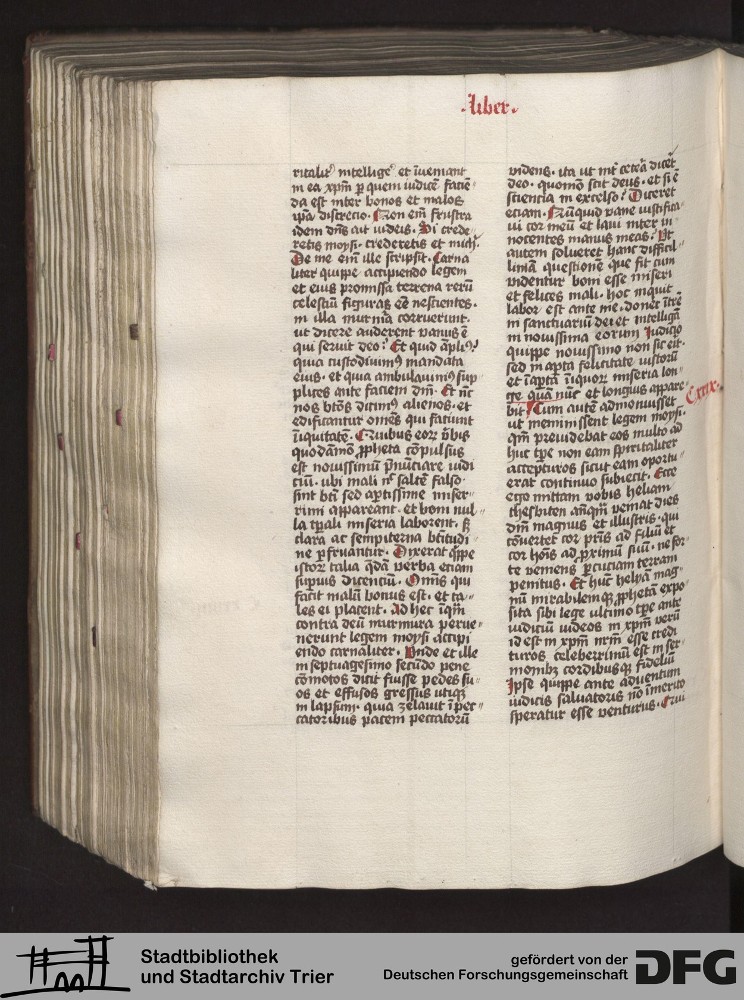 ·liber·
ritalit᷒ intellige᷒ et īueniant
in ea xp̄m ꝑ quem iudicē facie-
da est inter bonos et malos
ip̄a discrecio. Non em̄ frustra
idem dn̄s ait iudeis. Si crede-
retis moysi. crederetis et michi.
De me em̄ ille scripsit. Carna
liter quippe accipiendo legem
et eius promissa terrena rerū
celestiū figuras eē nescientes.
in illa murm̄a corruerunt.
ut dicere auderent vanus ē
qui seruit deo: Et quid ampliꝰ:
quia custodiuimꝰ mandata
eius. et quia ambulauimꝰ sup-
plices ante faciem dn̄i. Et nūc
nos btōs dicimꝰ alienos. et
edificantur om̄es qui faciunt
iniquitatē. Quibus eorꝝ v̄bis
quodāmō ꝓpheta cōpulsus
est nouissimū p̄nūciare iudi
ciū. ubi mali nec saltē falso
sint bt̄i sed aꝑtissime miser-
rimi appareant. et boni nul-
la tp̄ali miseria laborent. sꝫ
clara ac sempiterna bt̄itudi-
ne ꝑfruantur. Dixerat qͥppe
istorꝝ talia qͣdā verba etiam
superius dicenciū. Om̄is qui
facit malū bonus est. et ta-
les ei placent. Ad hec īqͣm
contra deū murmura perue-
nerunt legem moysi accipi
endo carnaliter. Unde et ille
in septuagesimo secūdo pene
cōmotos dicit fuisse pedes su-
os et effusos gressus utiqꝫ
in lapsum. quia zelauit ī pec-
catoribus pacem peccatorū
videns. ita ut int̄ cetea dicēt
deo. quomō scit deus. et si ē
sciencia in excelso: Diceret
etiam. Nūquid vane iustifica-
ui cor meū et laui inter in-
nocentes manus meas. Ut
autem solueret hanc difficil-
limā questionē que fit cum
videntur boni esse miseri
et felices mali. hoc inquit
labor est ante me. donec ītrē
in sanctuariū dei et intelligā
in nouissima eorum. Iudicio
quippe nouissimo non sic eit.
sed in aꝑta felicitate iustorū
et ī aꝑta iniquorꝝ miseria lon-
ge quā nūc et longius appare-
bit. Cum autē admonuisset
Cxxix.
ut meminissent legem moysi.
qm̄ preuidebat eos multo ad
huc tp̄e non eam sp̄iritaliter
accepturos sicut eam oportu-
erat continuo subiecit. Ecce
ego mittam vobis heliam
thesbiten anteqͣm veniat dies
dn̄i magnus et illustris. qui
cōuertet cor pr̄is ad filiū et
cor hōis ad ꝓximū suū. ne for-
te veniens ꝑcuciam terram
penitus. Et hūc helyā mag-
nū mirabilemqꝫ ꝓphetā expo-
sita sibi lege ultimo tp̄e ante
iudiciū iudeos in xp̄m verū
id est in xp̄m nrm̄ esse credi
turos celeberrimū est in ser-
monibꝫ cordibusqꝫ fideliū
Ipse quippe ante aduentum
iudicis saluatoris nō īmerito
speratur esse venturus. Qui
Stadtbibliothek
und Stadtarchiv Trier
gefördert von der
Deutschen Forschungsgemeinschaft
DFG